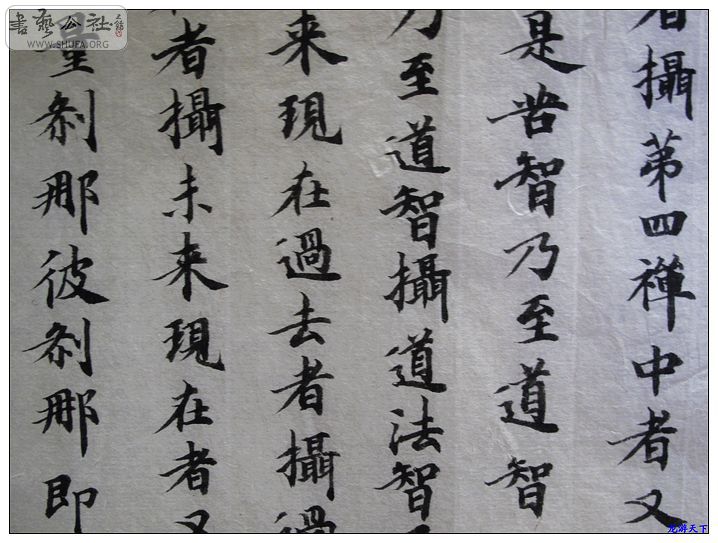 者攝第四禪中者又
是苦智乃至道智
乃至道智攝道法智
来現在過去者攝過
者攝未来現在者又
剎那彼剎那即
書藝公社
WWW.SHUFA.ORG
龙游天下